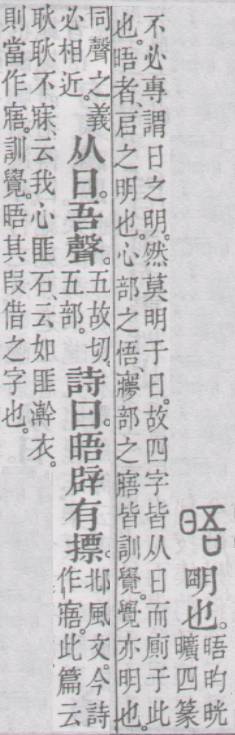 晤 朙也。晤昀晄
曠四篆
不必專謂日之明。然莫明于日。故四字皆从日而廁于此
也。晤者、启之明也。心部之悟、㝱部之寤皆訓覺。覺亦明也。
同聲之義
必相近。
从日。吾聲。
五故切。
五部。
詩曰。晤辟有摽。
邶風文。今詩
作寤。此篇云
耿耿不寐、云我心匪石、云如匪澣衣。
則當作寤。訓覺。晤其叚借之字也。